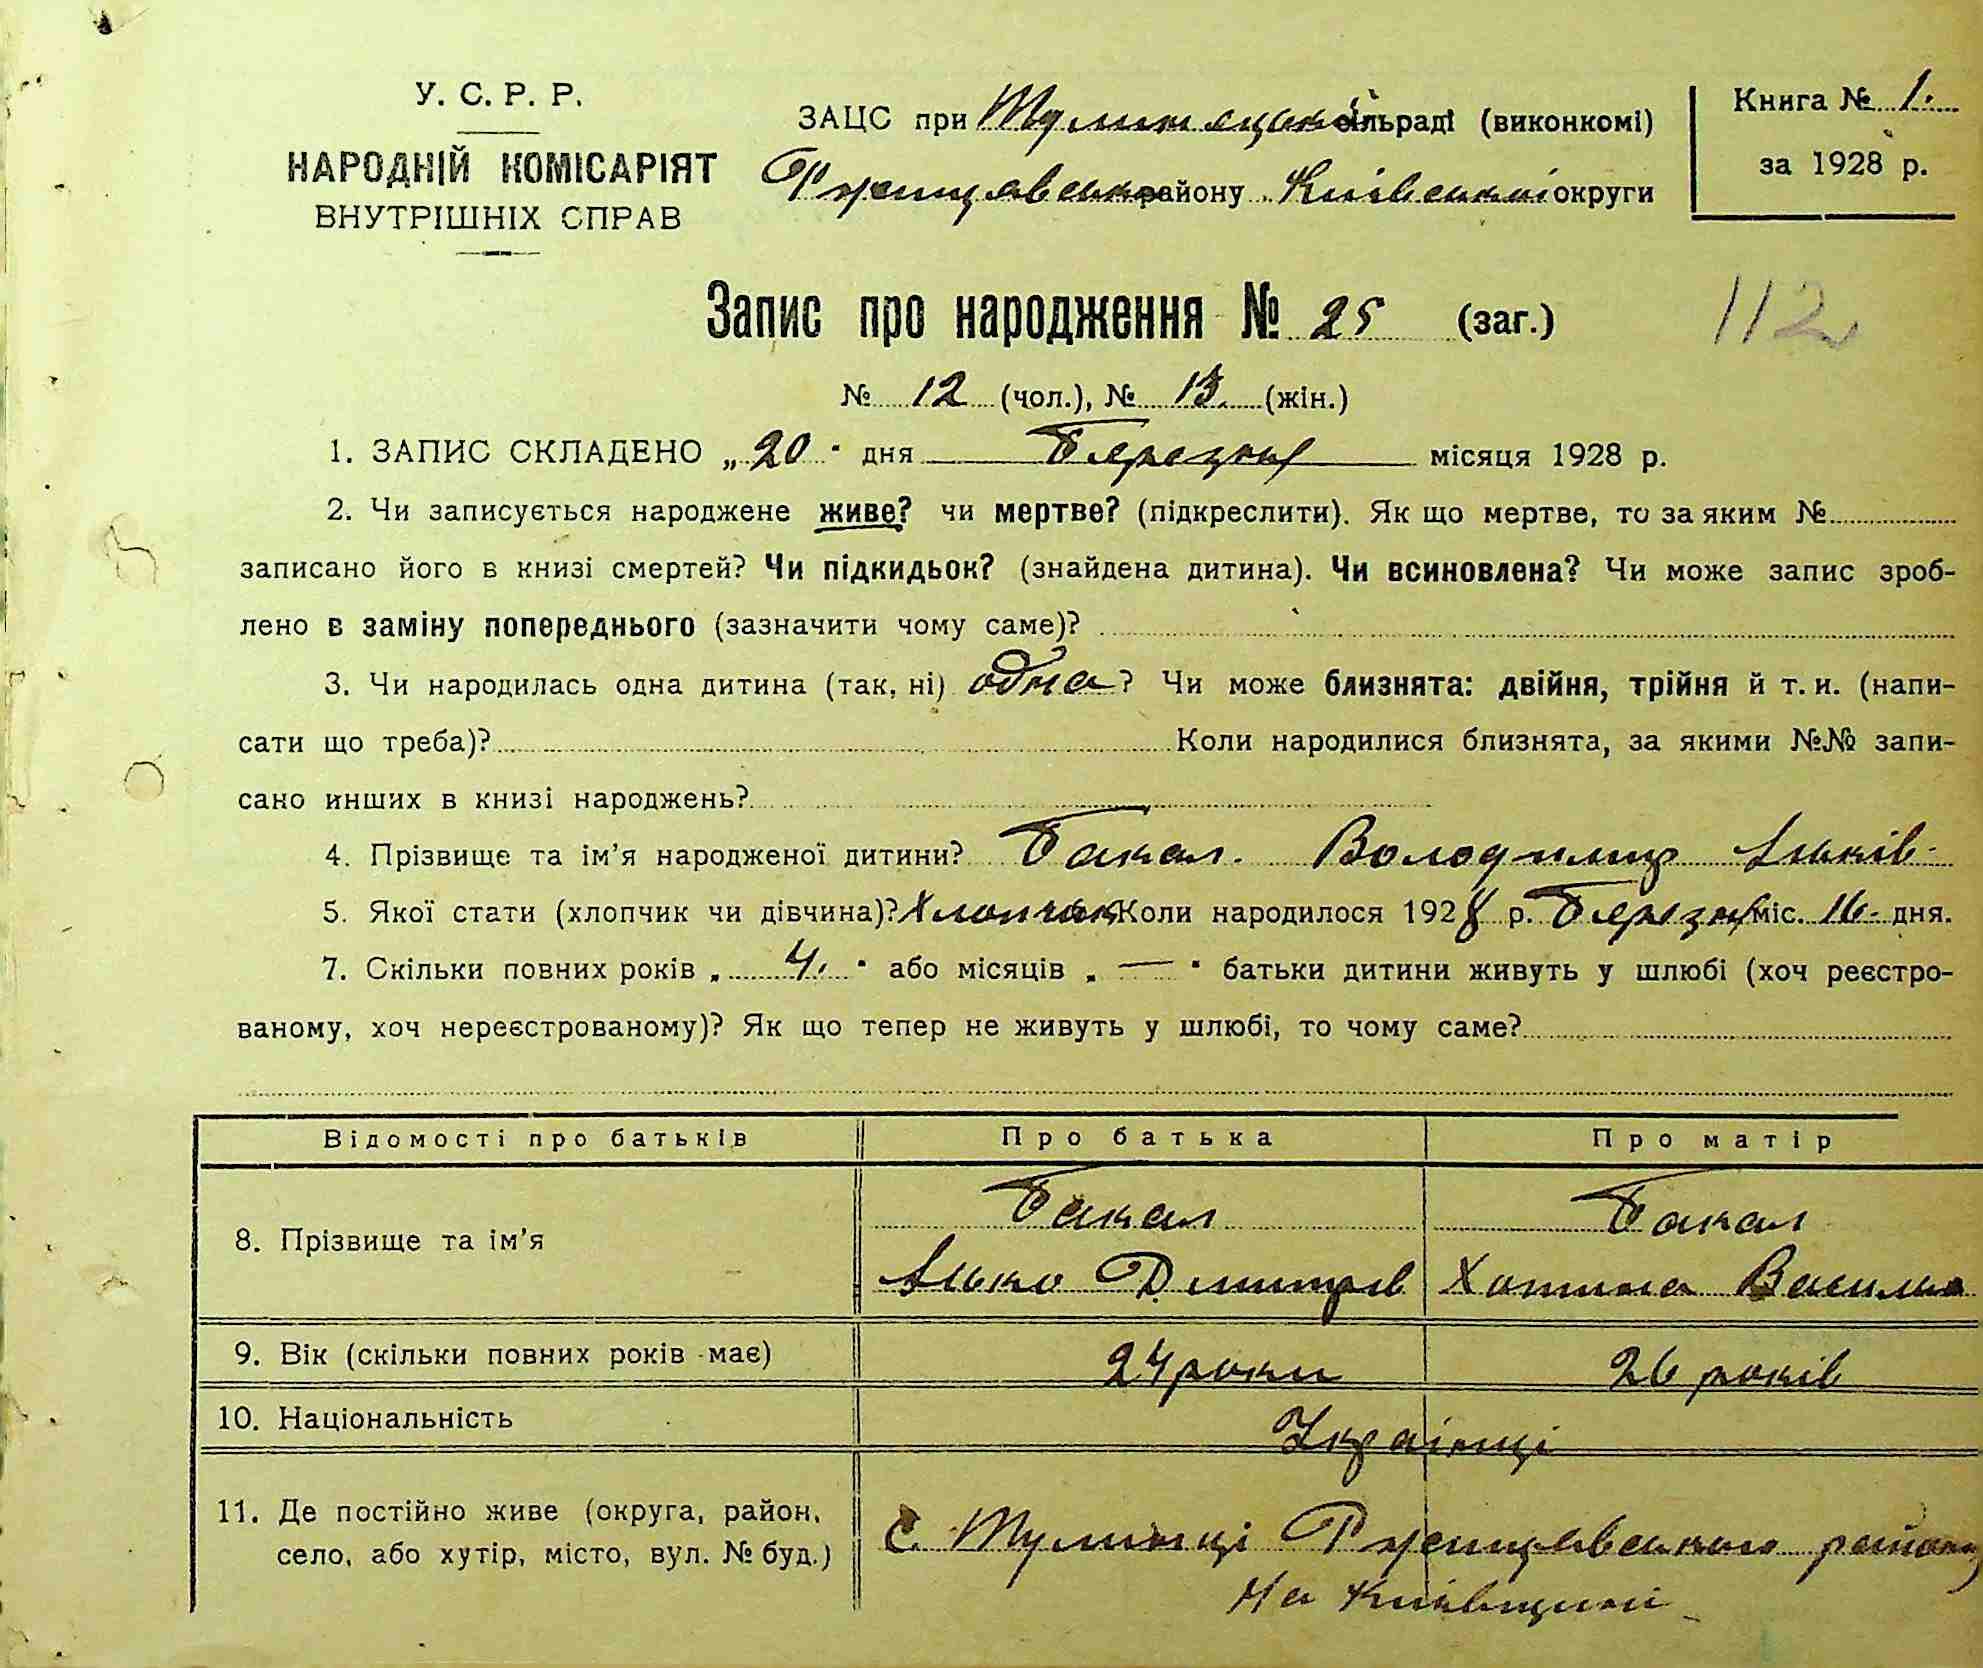 У. С. Р. Р.
НАРОДНІЙ КОМІСАРІЯТ
ВНУТРІШНІХ СПРАВ
ЗАЦС при Тулинецькій сільраді (виконкомі)
Ржищевського району Київської округи
Книга № 1.
за 1928 р.
Запис про народження № 25 (заг.)
112
№ 12 (чол.), № 13. (жін.)
1. ЗАПИС СКЛАДЕНО „20" дня Березня місяця 1928 р.
2. Чи записується народжене живе? чи мертве? (підкреслити). Як що мертве, то за яким №
записано його в книзі смертей? Чи підкидьок? (знайдена дитина). Чи всиновлена? Чи може запис зроб-
лено в заміну попереднього (зазначити чому саме)?
3. Чи народилась одна дитина (так, ні) одна? Чи може близнята: двійня, трійня й т. и. (напи-
сати що треба)? Коли народилися близнята, за якими №№ запи-
сано инших в книзі народжень?
4. Прізвище та ім'я народженої дитини? Бакал. Володимир Ільків
5. Якої стати (хлопчик чи дівчина)? Хлопчик Коли народилося 1928 р. Березня міс. 16 дня.
7. Скільки повних років „ 4. " або місяців „ — " батьки дитини живуть у шлюбі (хоч реєстро-
ваному, хоч нереєстрованому)? Як що тепер не живуть у шлюбі, то чому саме?
Відомості про батьків Про батька Про матір
8. Прізвище та ім'я
Бакал Бакал
Ілько Дмитрів Хотина Василів
9. Вік (скільки повних років має) 24 роки 26 років
10. Національність Українці
11. Де постійно живе (округа, район,
село, або хутір, місто, вул. № буд.)
С. Тулинці Ржищевського району
на Київщині